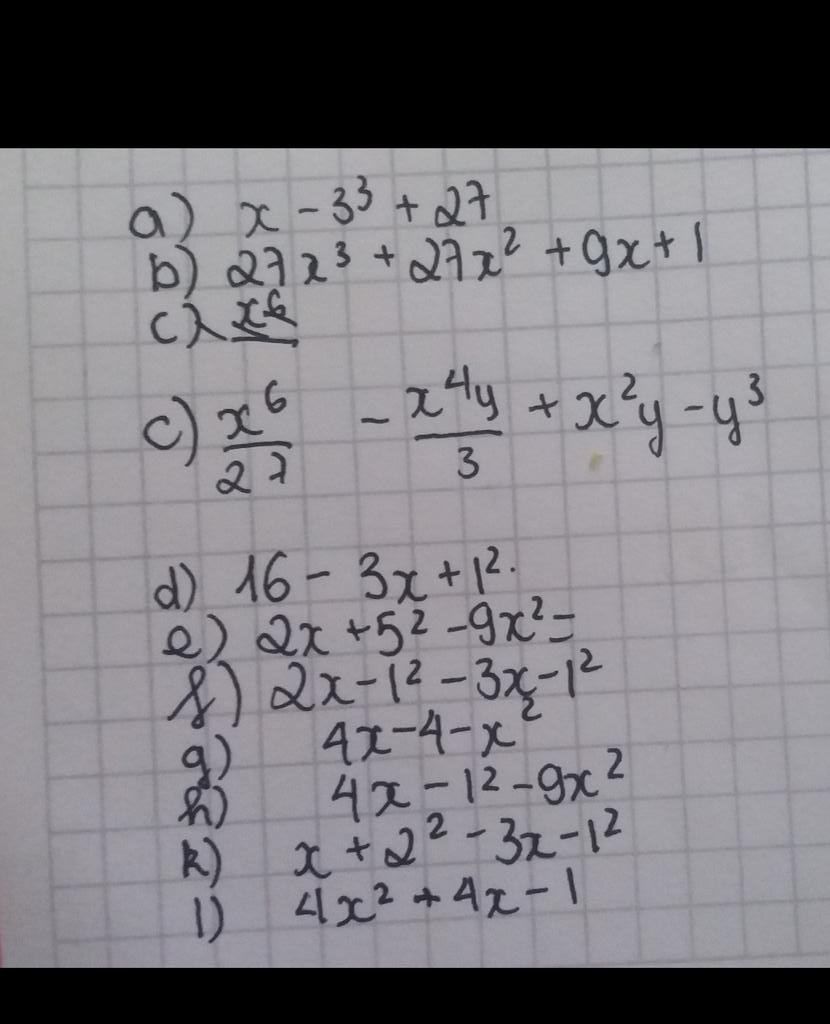 a) x - 3³ + 27
b) 27x³ + 27x² + 9x + 1
c) x⁶
c) x⁶/27 - x⁴y/3 + x²y - y³
d) 16 - 3x + 1².
e) 2x + 5² - 9x² =
f) 2x - 1² - 3x - 1²
g) 4x - 4 - x²
h) 4x - 1² - 9x²
k) x + 2² - 3x - 1²
l) 4x² + 4x - 1